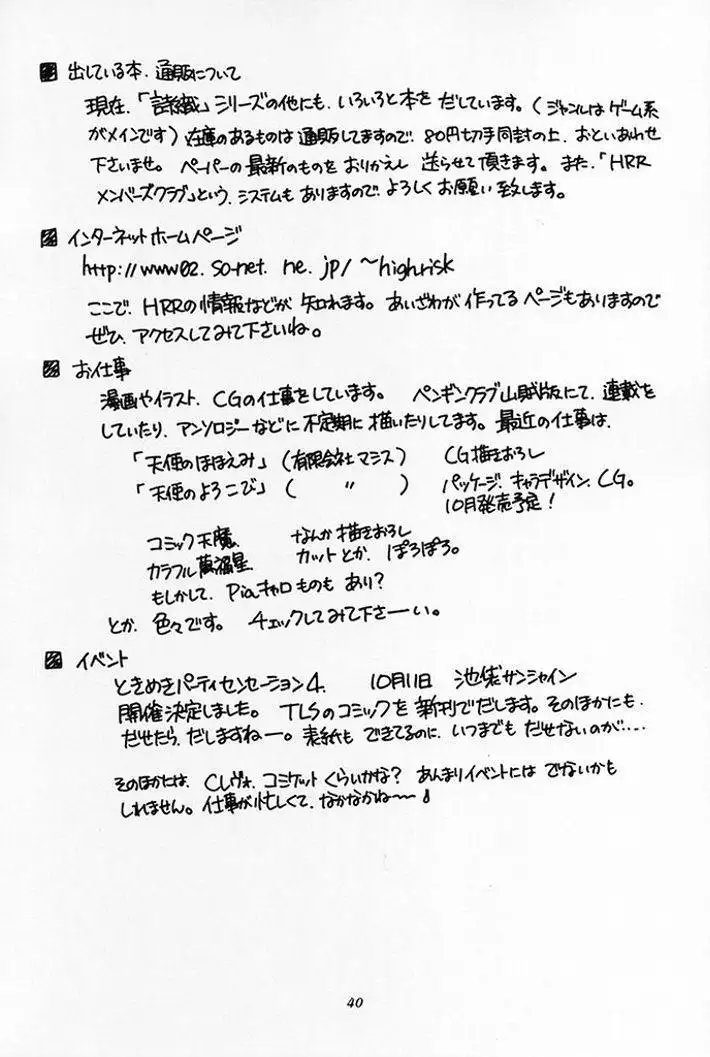 出している本、通販について
現在、「諸織」シリーズの他にも、いろいろと本を だしています。(ジャンルは ゲーム系
がメインです) 在庫のあるものは 通販してますので、80円切手同封の上、おといあわせ
下さいませ。 ペーパーの 最新のものを おりかえし 送らせて 頂きます。 また、「HRR
メンバーズクラブ」という、システムも ありますので、よろしく お願い 致します。
インターネットホームページ
http://www02.so-net.ne.jp/~highrisk
ここで、HRRの情報などが、知れます。あいざわが 作ってる ページもありますので
ぜひ、アクセスしてみて下さいね。
お仕事
漫画やイラスト、CGの仕事をしています。 ペンギンクラブ山賊版にて、連載を
していたり、アンソロジーなどに 不定期に 描いたりしてます。最近の仕事は、
「天使のほほえみ」(有限会社マシス) CG描きおろし
「天使のよろこび」( 〃 ) パッケージ、キャラデザイン、CG。
10月発売予定!
コミック天魔、 なんか描きおろし
カラフル萬福星、 カットとか、ぽろぽろ。
もしかして、Piaキャロものも あり?
とか、色々です。 チェックしてみて下さーい。
イベント
ときめきパーティセンセーション4、 10月11日 池袋サンシャイン
開催決定しました。 TLSのコミックを 新刊でだします。そのほかにも、
だせたら、だしますねー。表紙も できてるのに、いつまでも だせないのが‥‥
そのほかには、Cレヴォ、コミケット くらいかな? あんまりイベントには でないかも
しれません。仕事が忙しくて、なかなかね〜〜♪
40